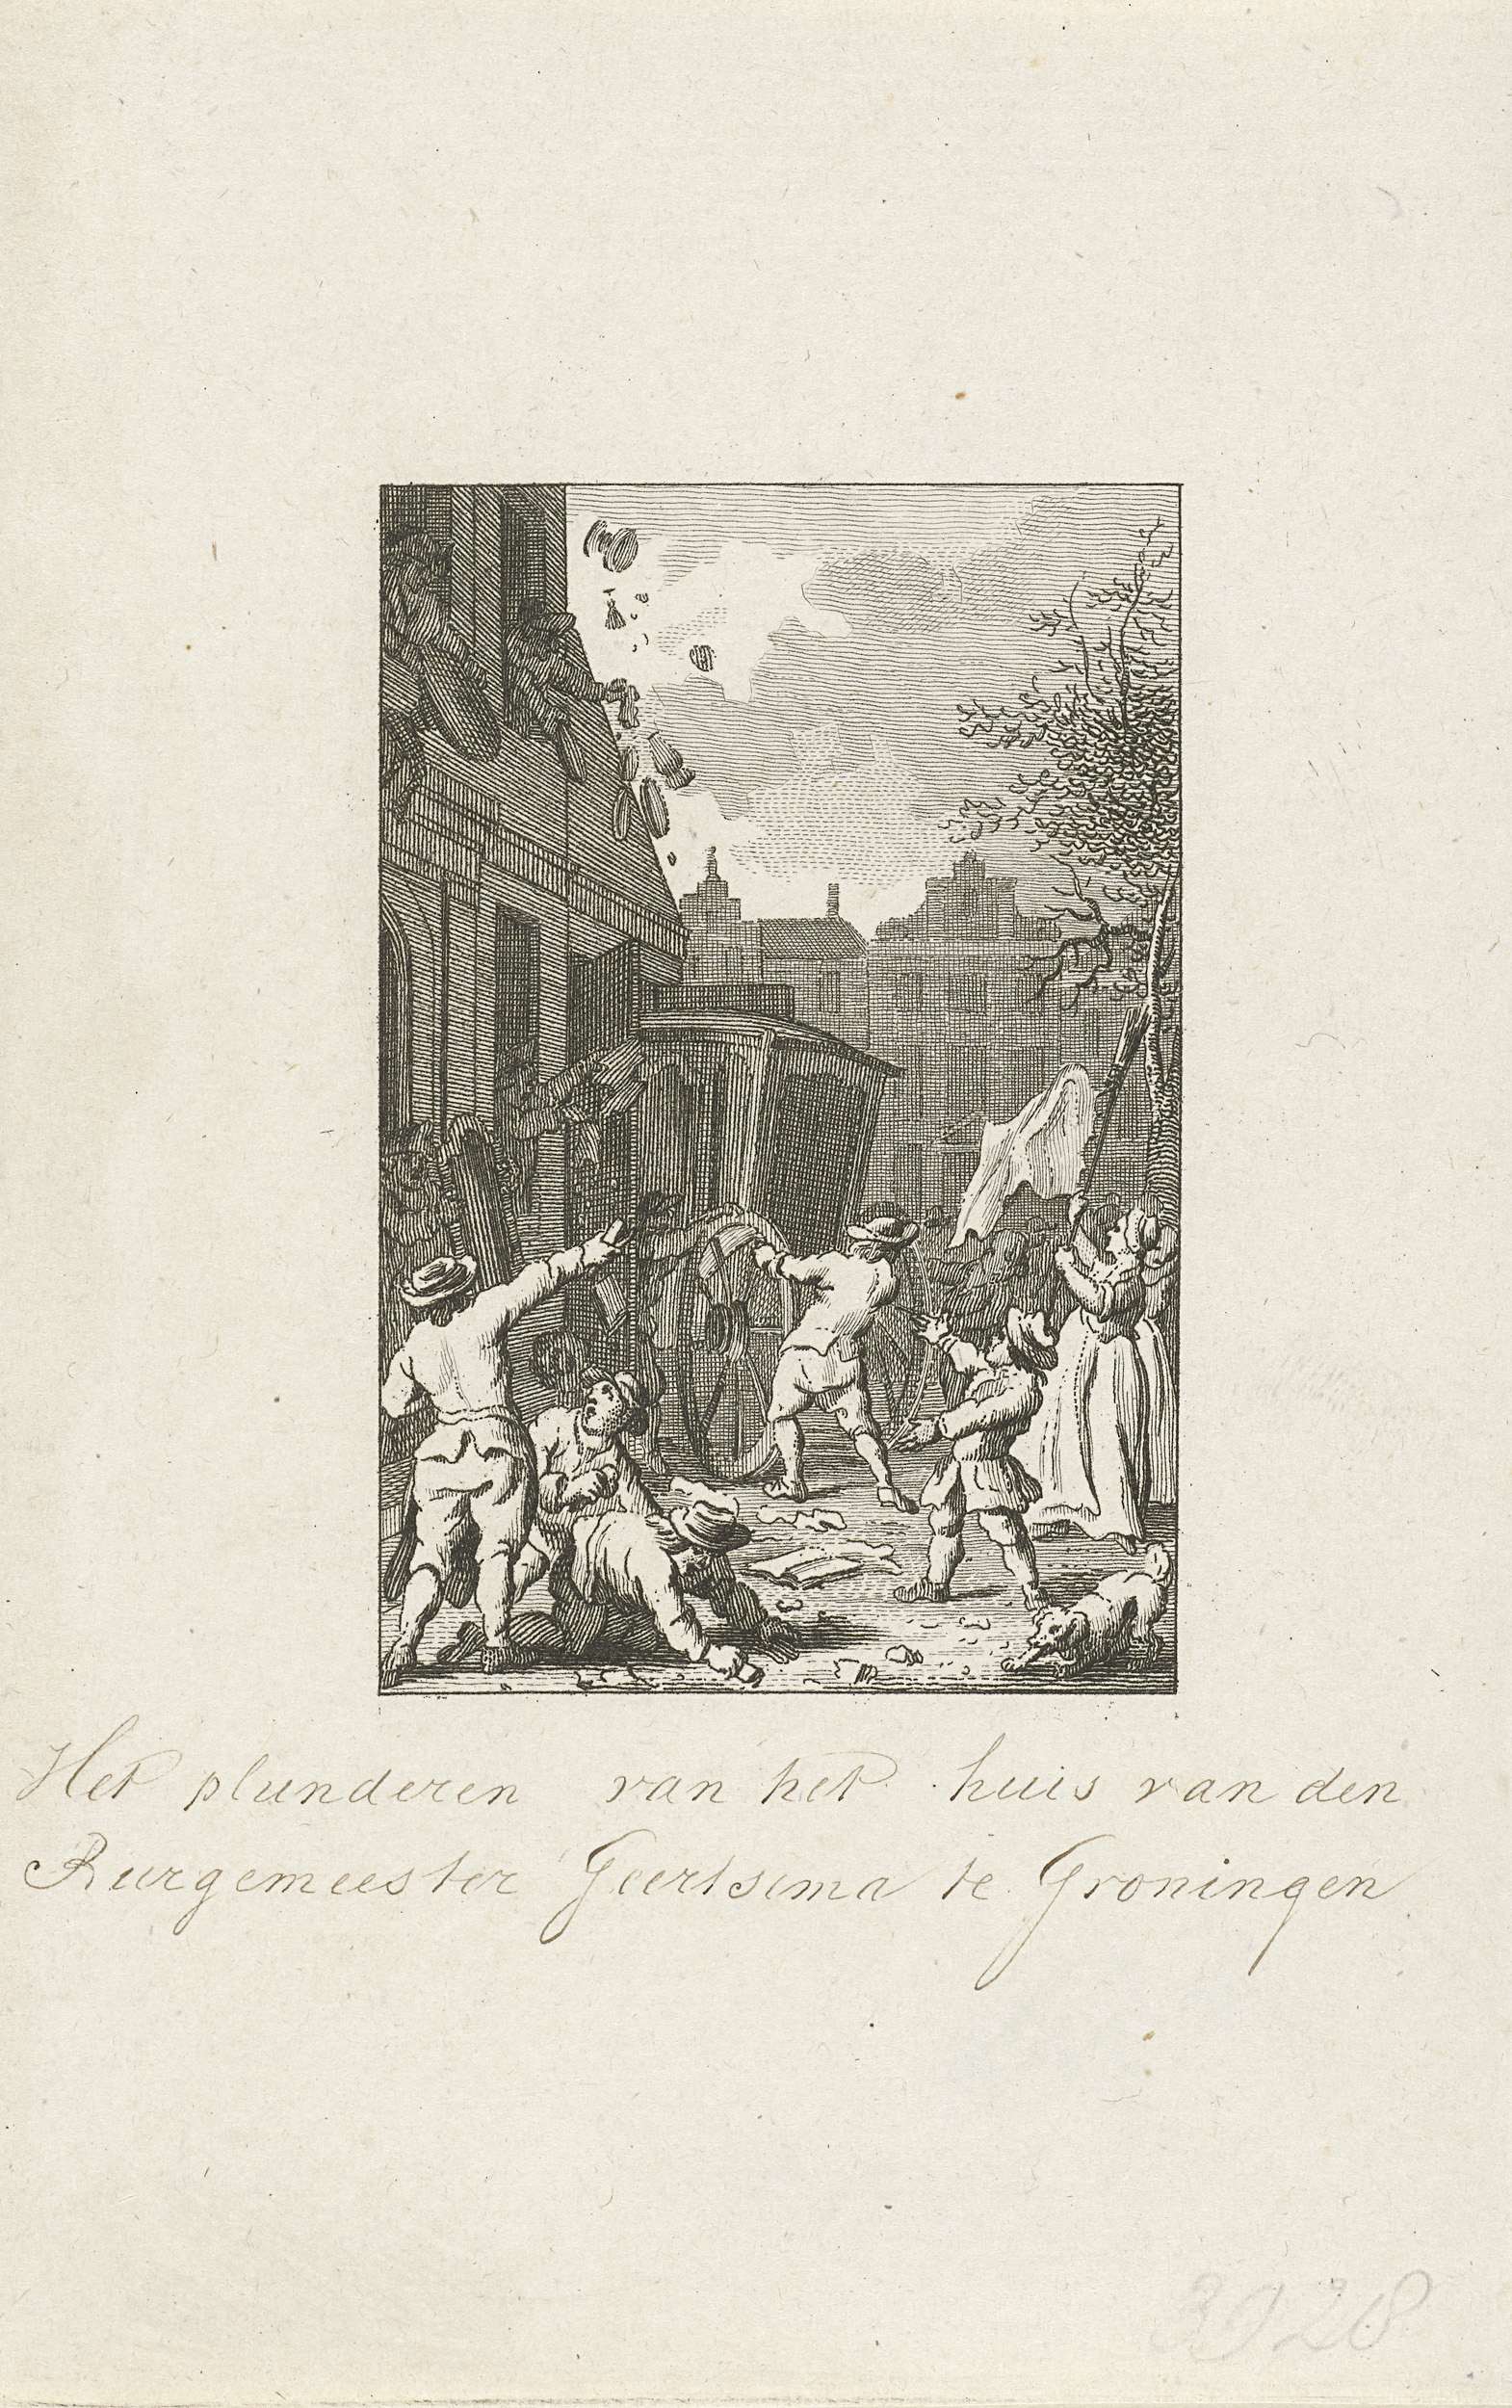 Het plunderen van het huis van den
Burgemeester Geertsema te Groningen
3928